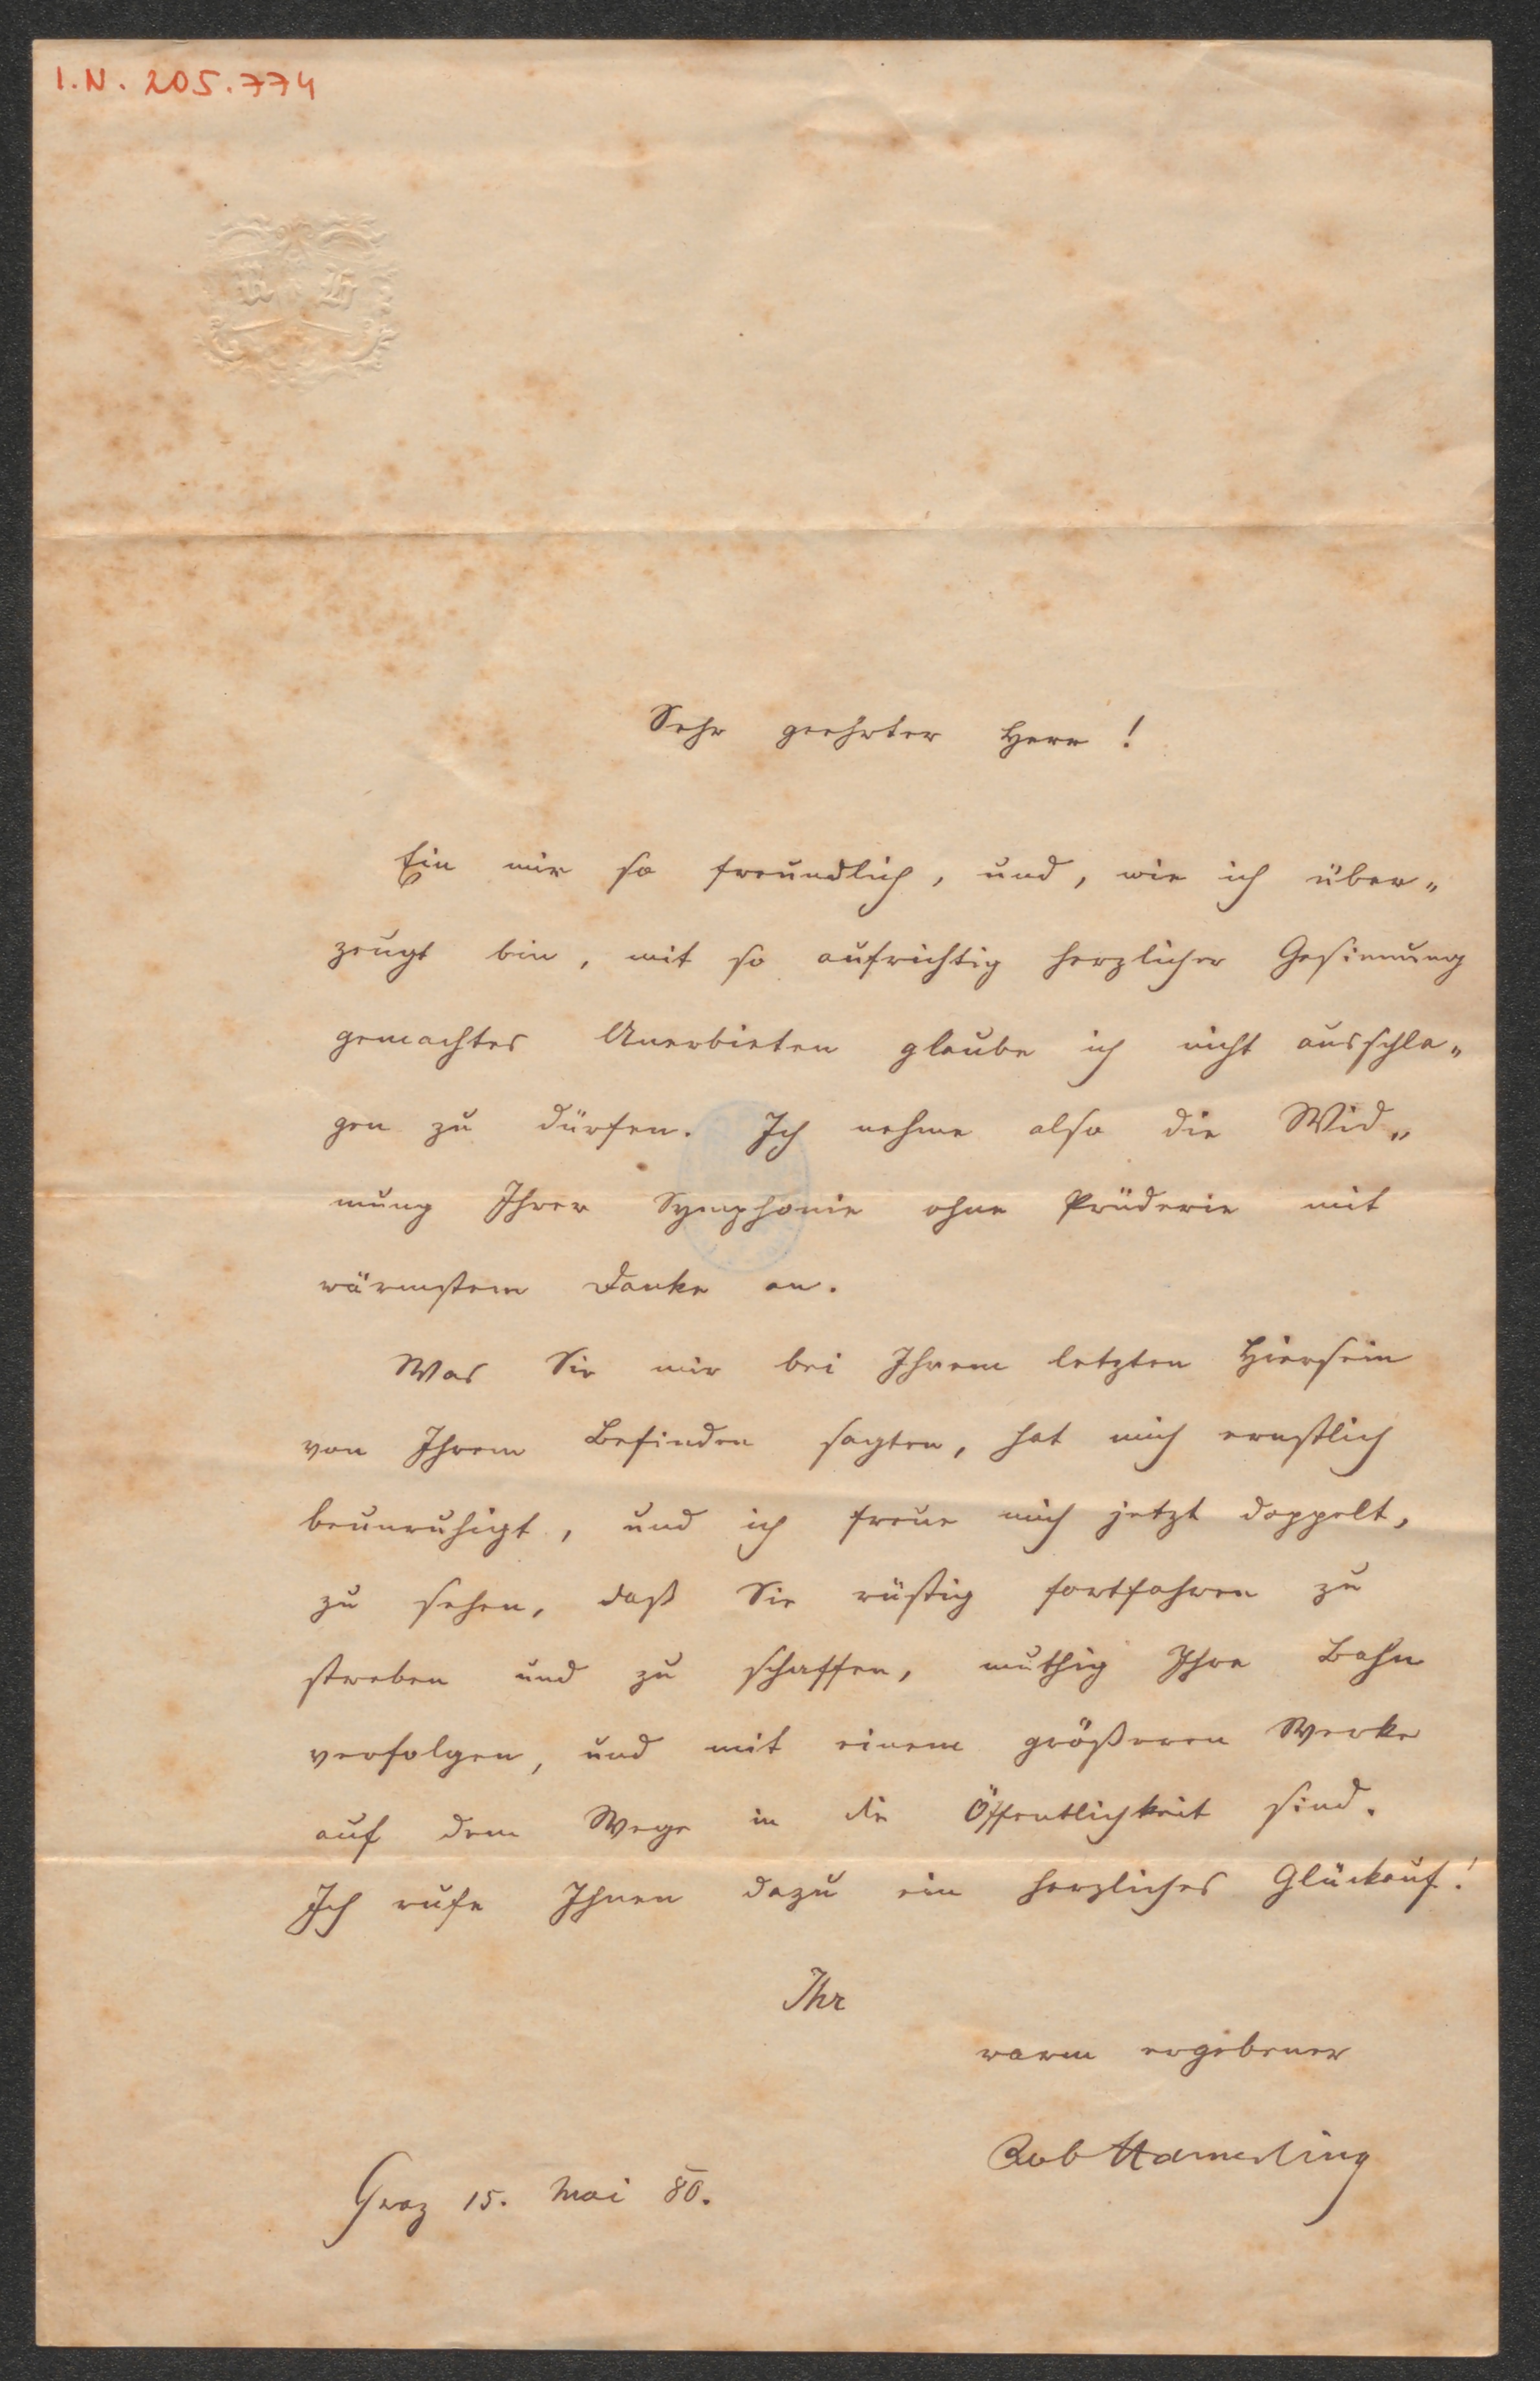 I.N. 205.774
R H
Sehr geehrter Herr!
Ein mir so freundlich, und, wie ich über„
zeugt bin, mit so aufrichtig herzlicher Gesinnung
gemachtes Anerbieten glaube ich nicht ausschla„
gen zu dürfen. Ich nehme also die Wid„
mung Ihrer Symphonie ohne Prüderie mit
wärmstem Danke an.
Was Sie mir bei Ihrem letzten Hiersein
von Ihrem Befinden sagten, hat mich ernstlich
beunruhigt, und ich freue mich jetzt doppelt,
zu sehen, daß Sie rüstig fortfahren zu
streben und zu schaffen, muthig Ihre Bahn
verfolgen, und mit einem größeren Werke
auf dem Wege in die Öffentlichkeit sind.
Ich rufe Ihnen dazu ein herzliches Glückauf!
Ihr
warm ergebener
Rob Hamerling
Graz 15. Mai 80.